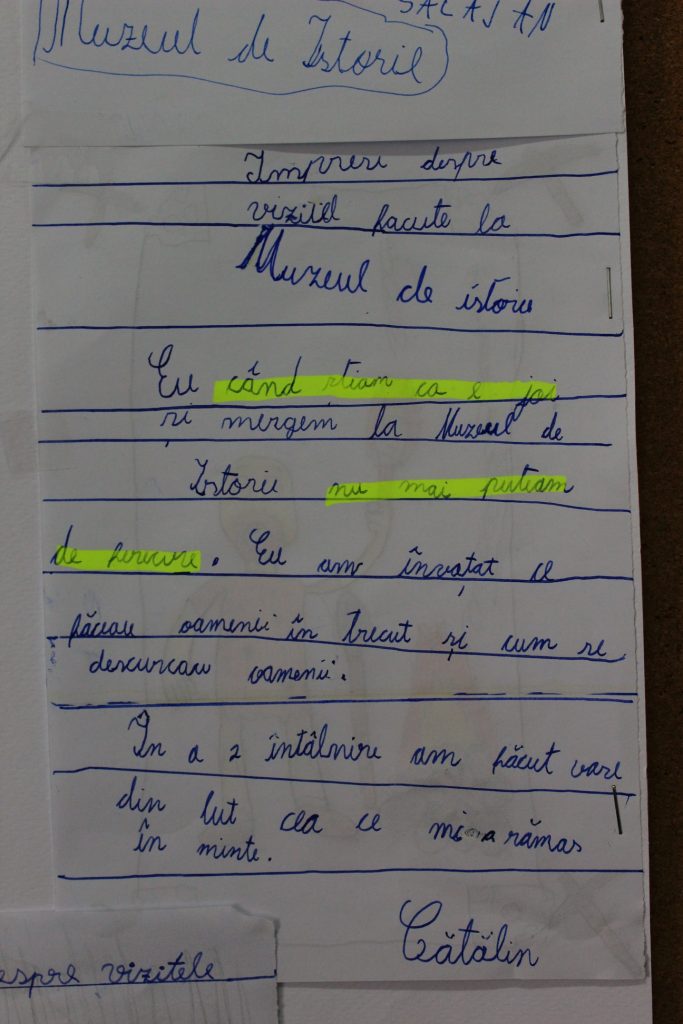 SALAJAN
Muzeul de Istorie
Impresi despre
vizitel facute la
Muzeul de istorie
Eu când stiam ca e joi
și mergem la Muzeul de
Istorie nu mai puteam
de fericire. Eu am învațat ce
făceau oamenii în trecut și cum se
descurcau oamenii.
În a 2 întâlnire am făcut vase
din lut cea ce mi a rămas
în minte.
Cătălin
espre vizitele